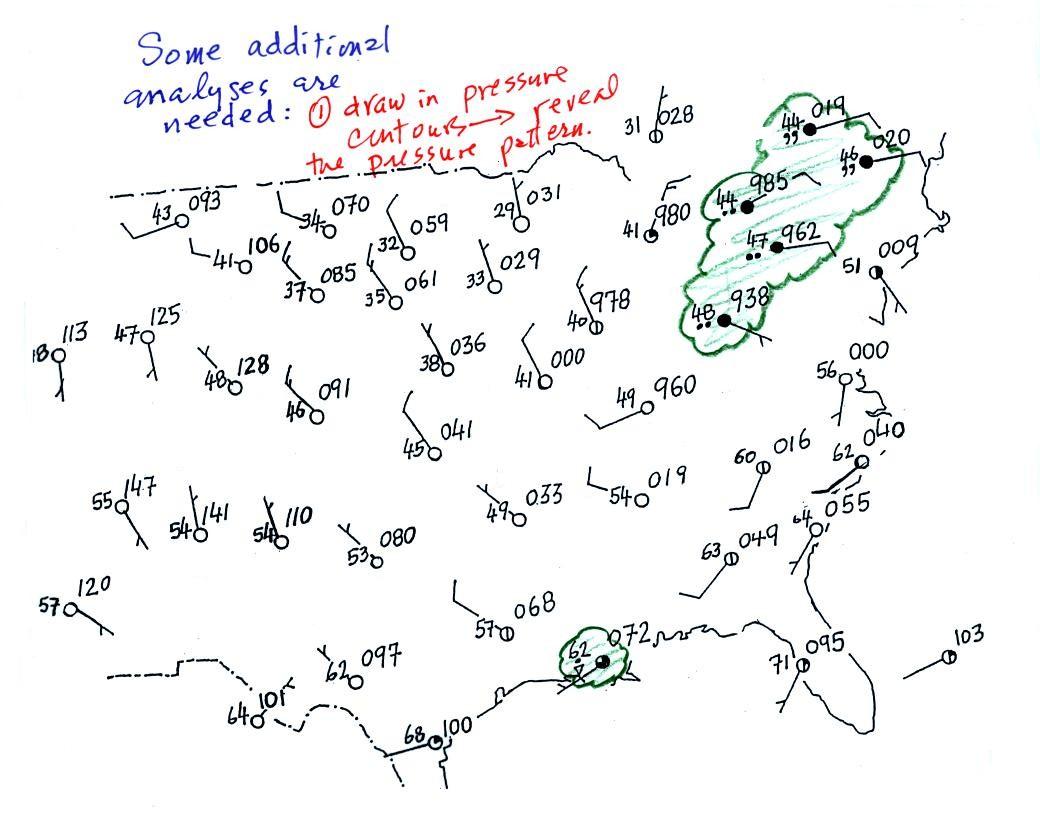 Some additional
analyses are
needed: ① draw in pressure
contours → reveal
the pressure pattern.
31 028
44 019
46 020
43 093
34 070
32 059
29 031
41 980
44 985
41 106
37 085
35 061
33 029
47 962
51 009
18 113
47 125
48 128
46 091
38 036
40 978
41 000
48 938
49 960
56 000
45 041
60 016
62 040
55 147
54 141
54 110
53 080
49 033
54 019
63 049
64 055
57 120
57 068
62 072
62 097
64 101
68 100
71 095
103